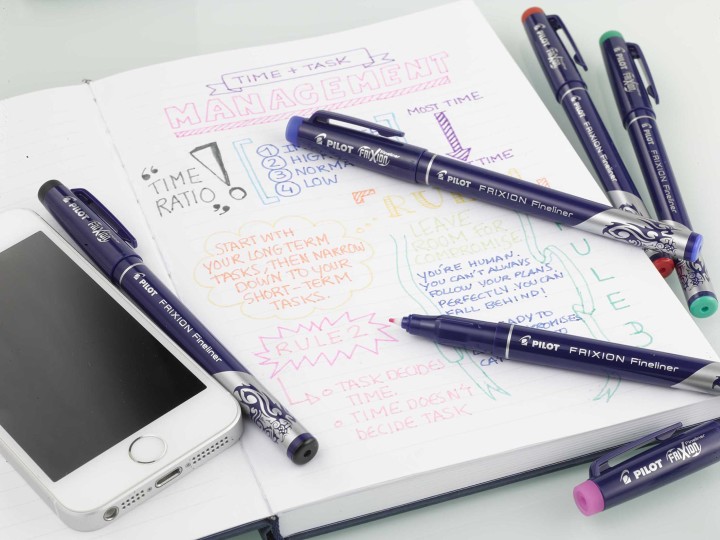 TIME + TASK
MANAGEMENT
MOST TIME
TIME
"TIME
RATIO"!
①
② HIGH
③ NORMAL
④ LOW
START WTH
YOUR LONG TERM
TASKS, THEN NARROW
DOWN TO YOUR
SHORT-TERM
TASKS.
LEAVE
YOU'RE HUMAN.
YOU CAN'T ALWAYS
FOLLOW YOUR PLANS,
PERFECTLY. YOU CAN
FALL BEHIND!
RULE 2
TASK DECIDES
TIME.
TIME DOESN'T
DECIDE TASK
ULE 3
PILOT FRIXION
PILOT FRIXION Fineliner
FRIXION
PILOT FRIXION Fineliner
PILOT FRIXION
PILOT FRIXION Fineliner
PILOT FRIXION
PILOT FRIXION Fineliner
PILOT FRIXION Fineliner
PILOT FRIXION